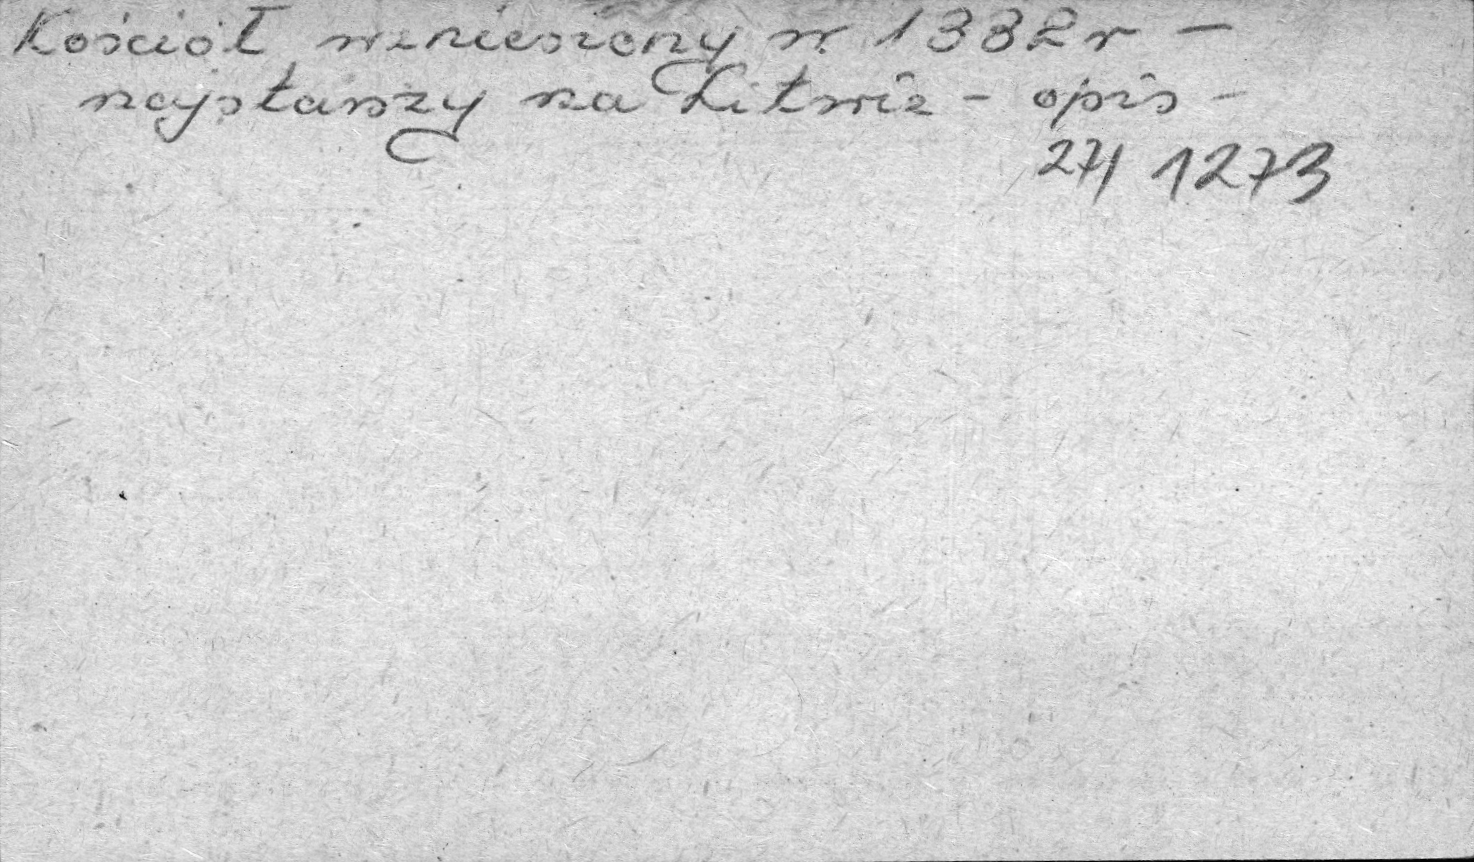 Kościół wzniesiony w 1382 r —
najstarszy na Litwie - opis -
27/ 1273